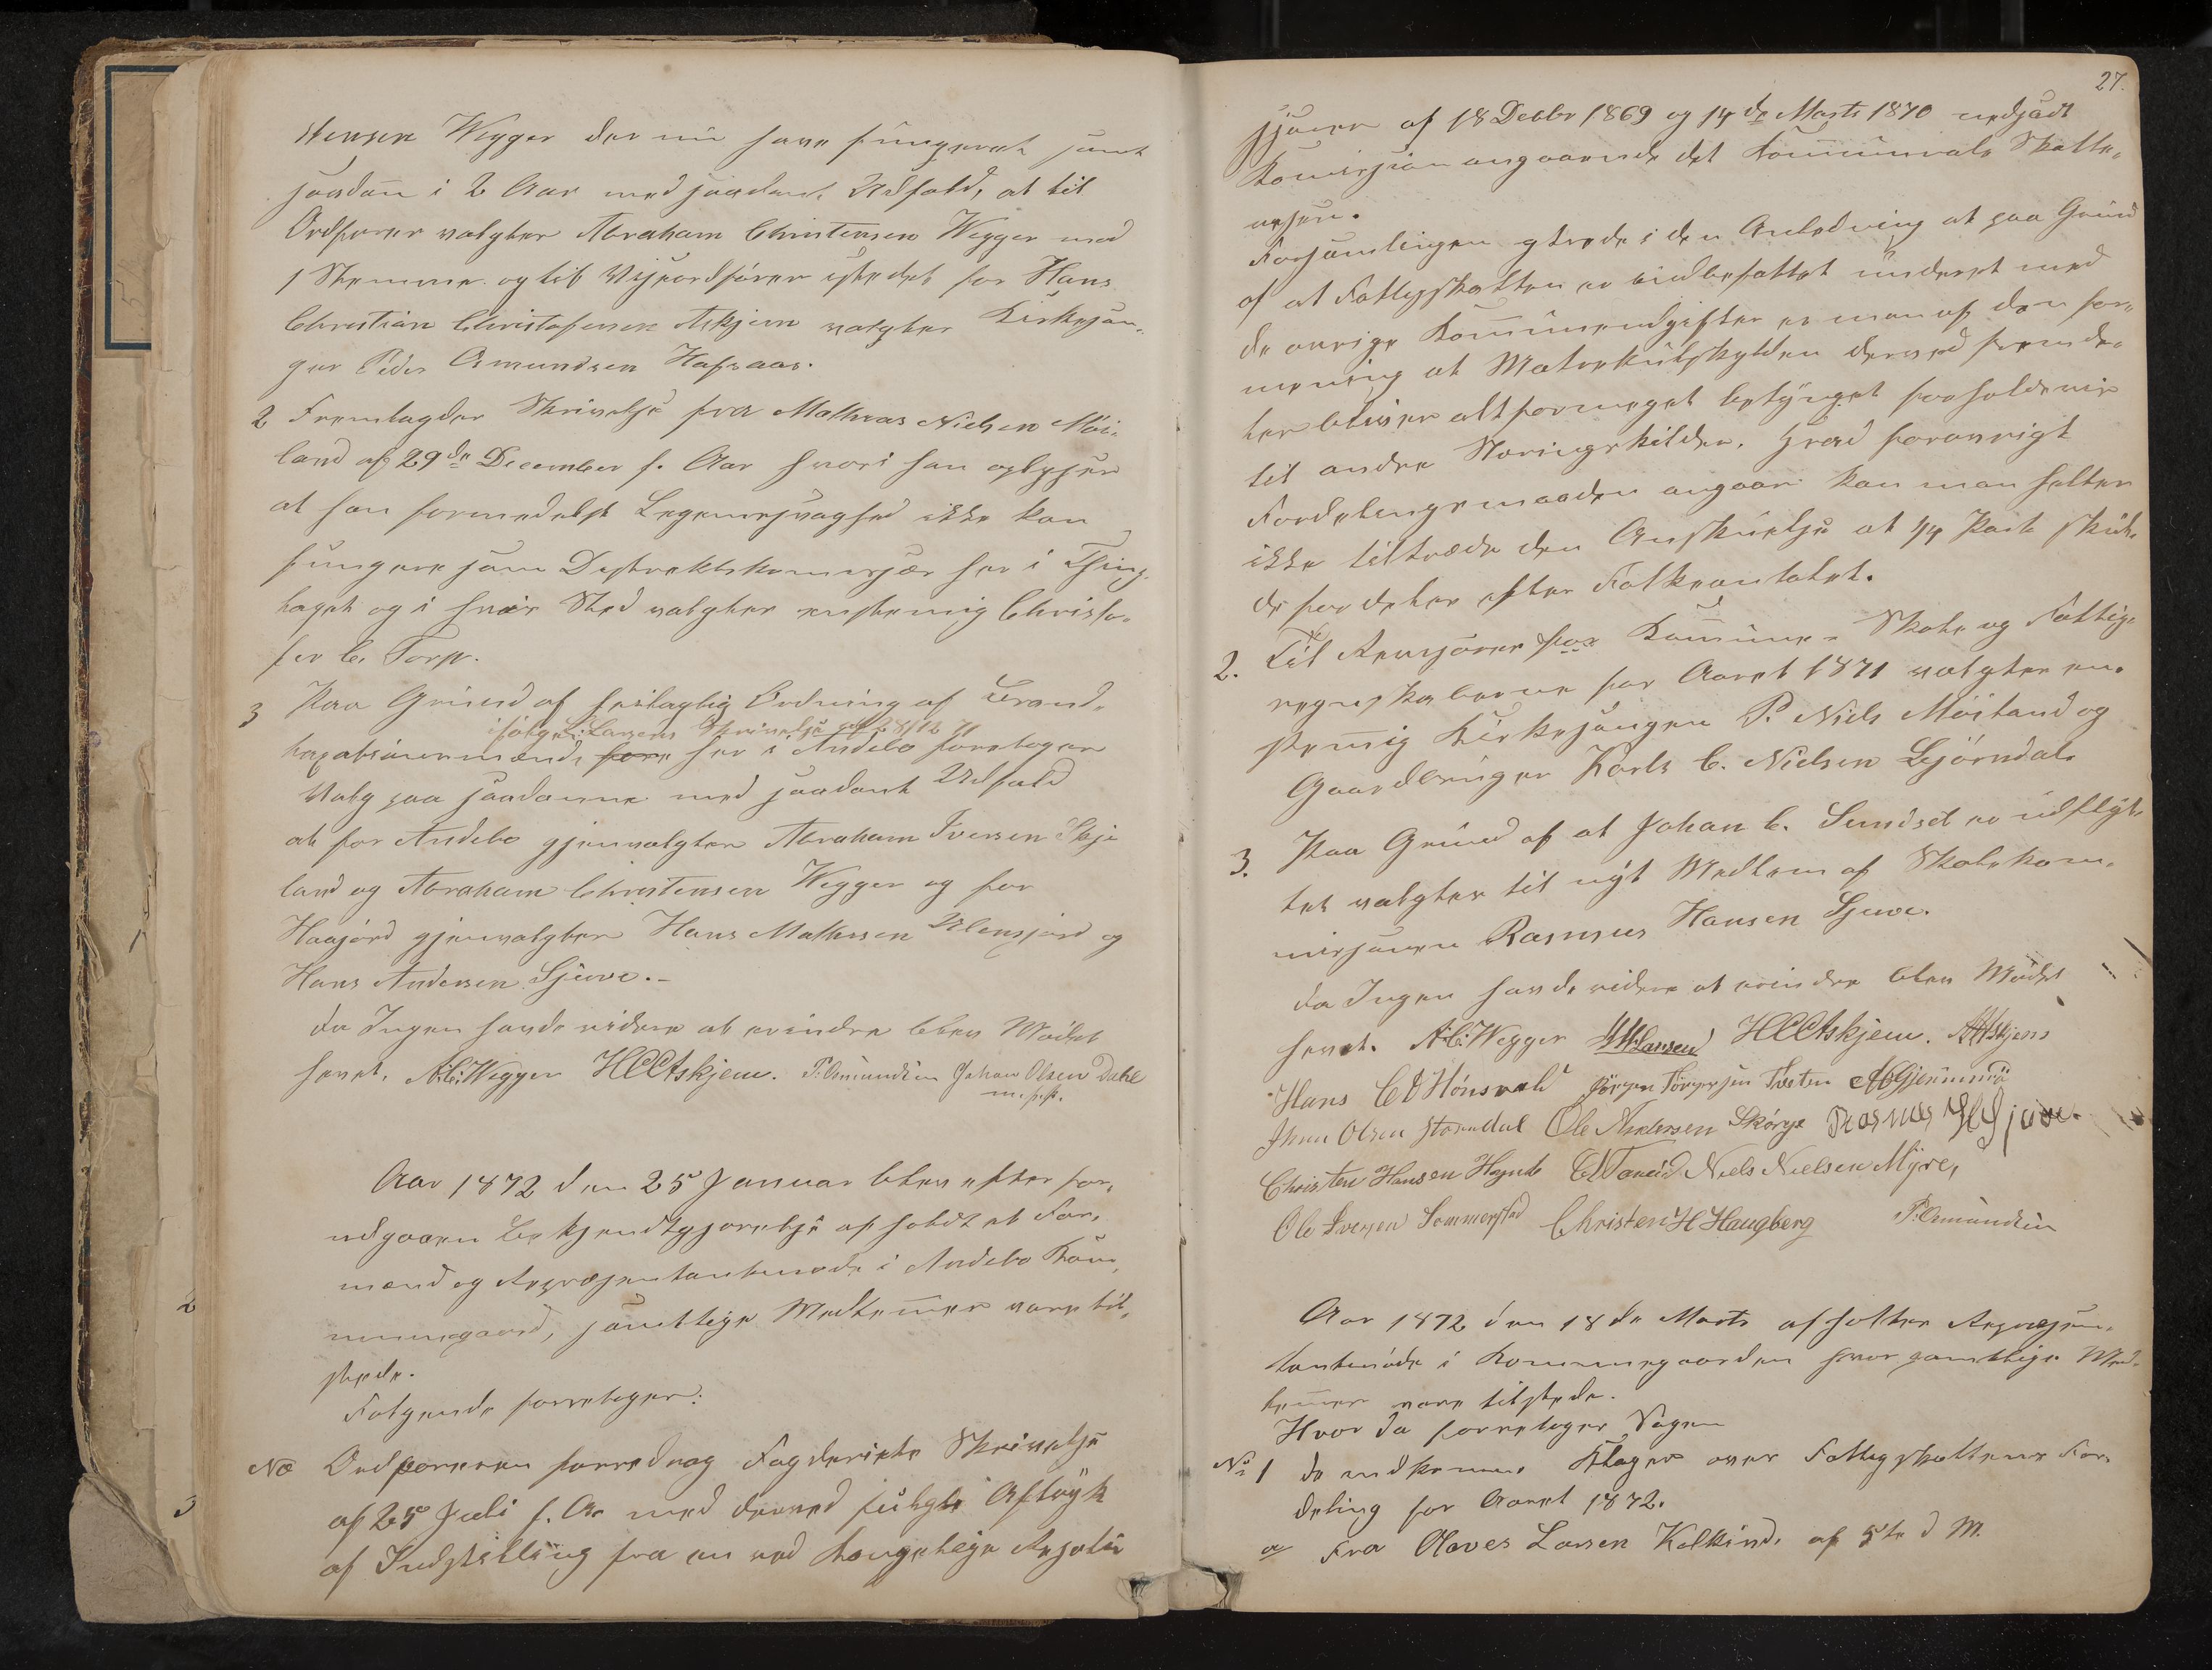 stensen Wegger der nu have fungeret samt
saadan i 2 Aar med saadant Udfald, at til
Ordfører valgtes Abraham Christensen Wegger med
1 Stemme og til Viseordfører istedet for Hans
Christian Christofersen Askjem valgtes Kirkesan-
ger Peder Amundsen Hafsaas.
2 Fremlagdes Skrivelse fra Mathias Nielsen Möi-
land af 29de December f. Aar hvori han oplyser
at han formedelst Legemssvaghed ikke kan
fungere som Destrektskomisjær her i Thing-
laget og i hvis Sted valgtes enstemig Christo-
fer C. Torp.
3 Paa Grund af feilagtig Ordning af Brand-
ifølge L. Larsens Skrivelse af 28/12 71
taxationsmænd, fore her i Andebo foretoges
Valg paa saadanne med saadant Udfald
at for Andebo gjenvalgtes Abraham Iversen Skje
land og Abraham Christensen Wegger og for
Haasjord gjenvalgtes Hans Mathissen og
Hans Andersen Sjuve.-
da Ingen havde videre at erindre blev Mödet
hevet. A:C:Wegger HCCAskjem. P. Amundsen Johan Olsen Dahl
m. p. p.
Aar 1872 den 25 Januar blev efter for-
udgaaen Bekjendtgjørelse afholdt et For-
mænd og Repræsentantmøde i Andebo Kom-
munegaard, samtlige Medlemer vare til-
stede.
Følgende foretoges:
No Ordføreren foredrog Fogderiets Skrivelse
af 25 Juli f. A. med derved fulgte Aftryk
af Indstilling fra en ved Kongelige Resolu
27.
sjoner af 18 Decbr 1869 og 14de Marts 1870 nedsadt
Komisjion angaaende det Kommunale Skatte-
vesen.
Forsamlingen ytrede i den Anledning at paa Grund
af at Fattigskatten er indbefattet underet med
de øvrige Kommuneudgifter er man af den for-
mening at Matrekulskylden derved fremde-
les bliver altformeget betynget forholdsvis
til andre Næringskilder. Hvad forøvrigt
Fordelingsmaaden angaar kan man heller
ikke tiltræde den Anskuelse at 1/4 Part skulde
de fordeles efter Folkeantalet.
2. Til Revisorer for Kommune- Skole og Fattig-
regnskaberne for Aaret 1871 valgtes en-
stemig Kirkesanger P. Niels Möiland og
Gaardbruger Karls C. Nielsen Bjørndal.
3. Paa Grund af at Johan C. Sundset er udflyt-
tet valgtes til nyt Medlem af Skolekom-
misjonen Rasmus Hansen Sjuve.
da Ingen havde videre at erindre blev Mödet
hevet. A:C:Wegger Larsen HCCAskjem. AHAskjem
Hans Hönsvald Jörgen Törgersen Tveten
Johan Olsen Stordal Ole Andersen Skorge Rasmus H Sjuve.
Christen Hansen Niels Nielsen Myre,
Ole Iversen Sommerstad Christen H Haugberg P. Amundsen
Aar 1872 den 18de Marts afholtes Repræsen-
tantmöde i Kommunegaarden hvor samtlige Med-
lemer vare tilstede.
Hvor da foretoges Sagen
No 1 de indkomne Klager over Fattigskattens For-
deling for Aaret 1872.
a/ Fra Olaves Larsen Kolkind. af 5te d M.